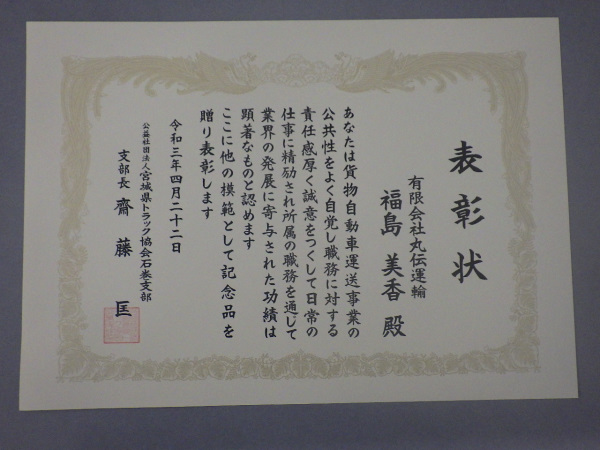 表彰状
有限会社丸伝運輸
福島美香殿
あなたは貨物自動車運送事業の
公共性をよく自覚し職務に対する
責任感厚く誠意をつくして日常の
仕事に精励され所属の職務を通して
業界の発展に寄与された功績は
顕著なものと認めます
ここに他の模範として記念品を
贈り表彰します
令和三年四月二十二日
公益社団法人宮城県トラック協会石巻支部
支部長 齋藤匡